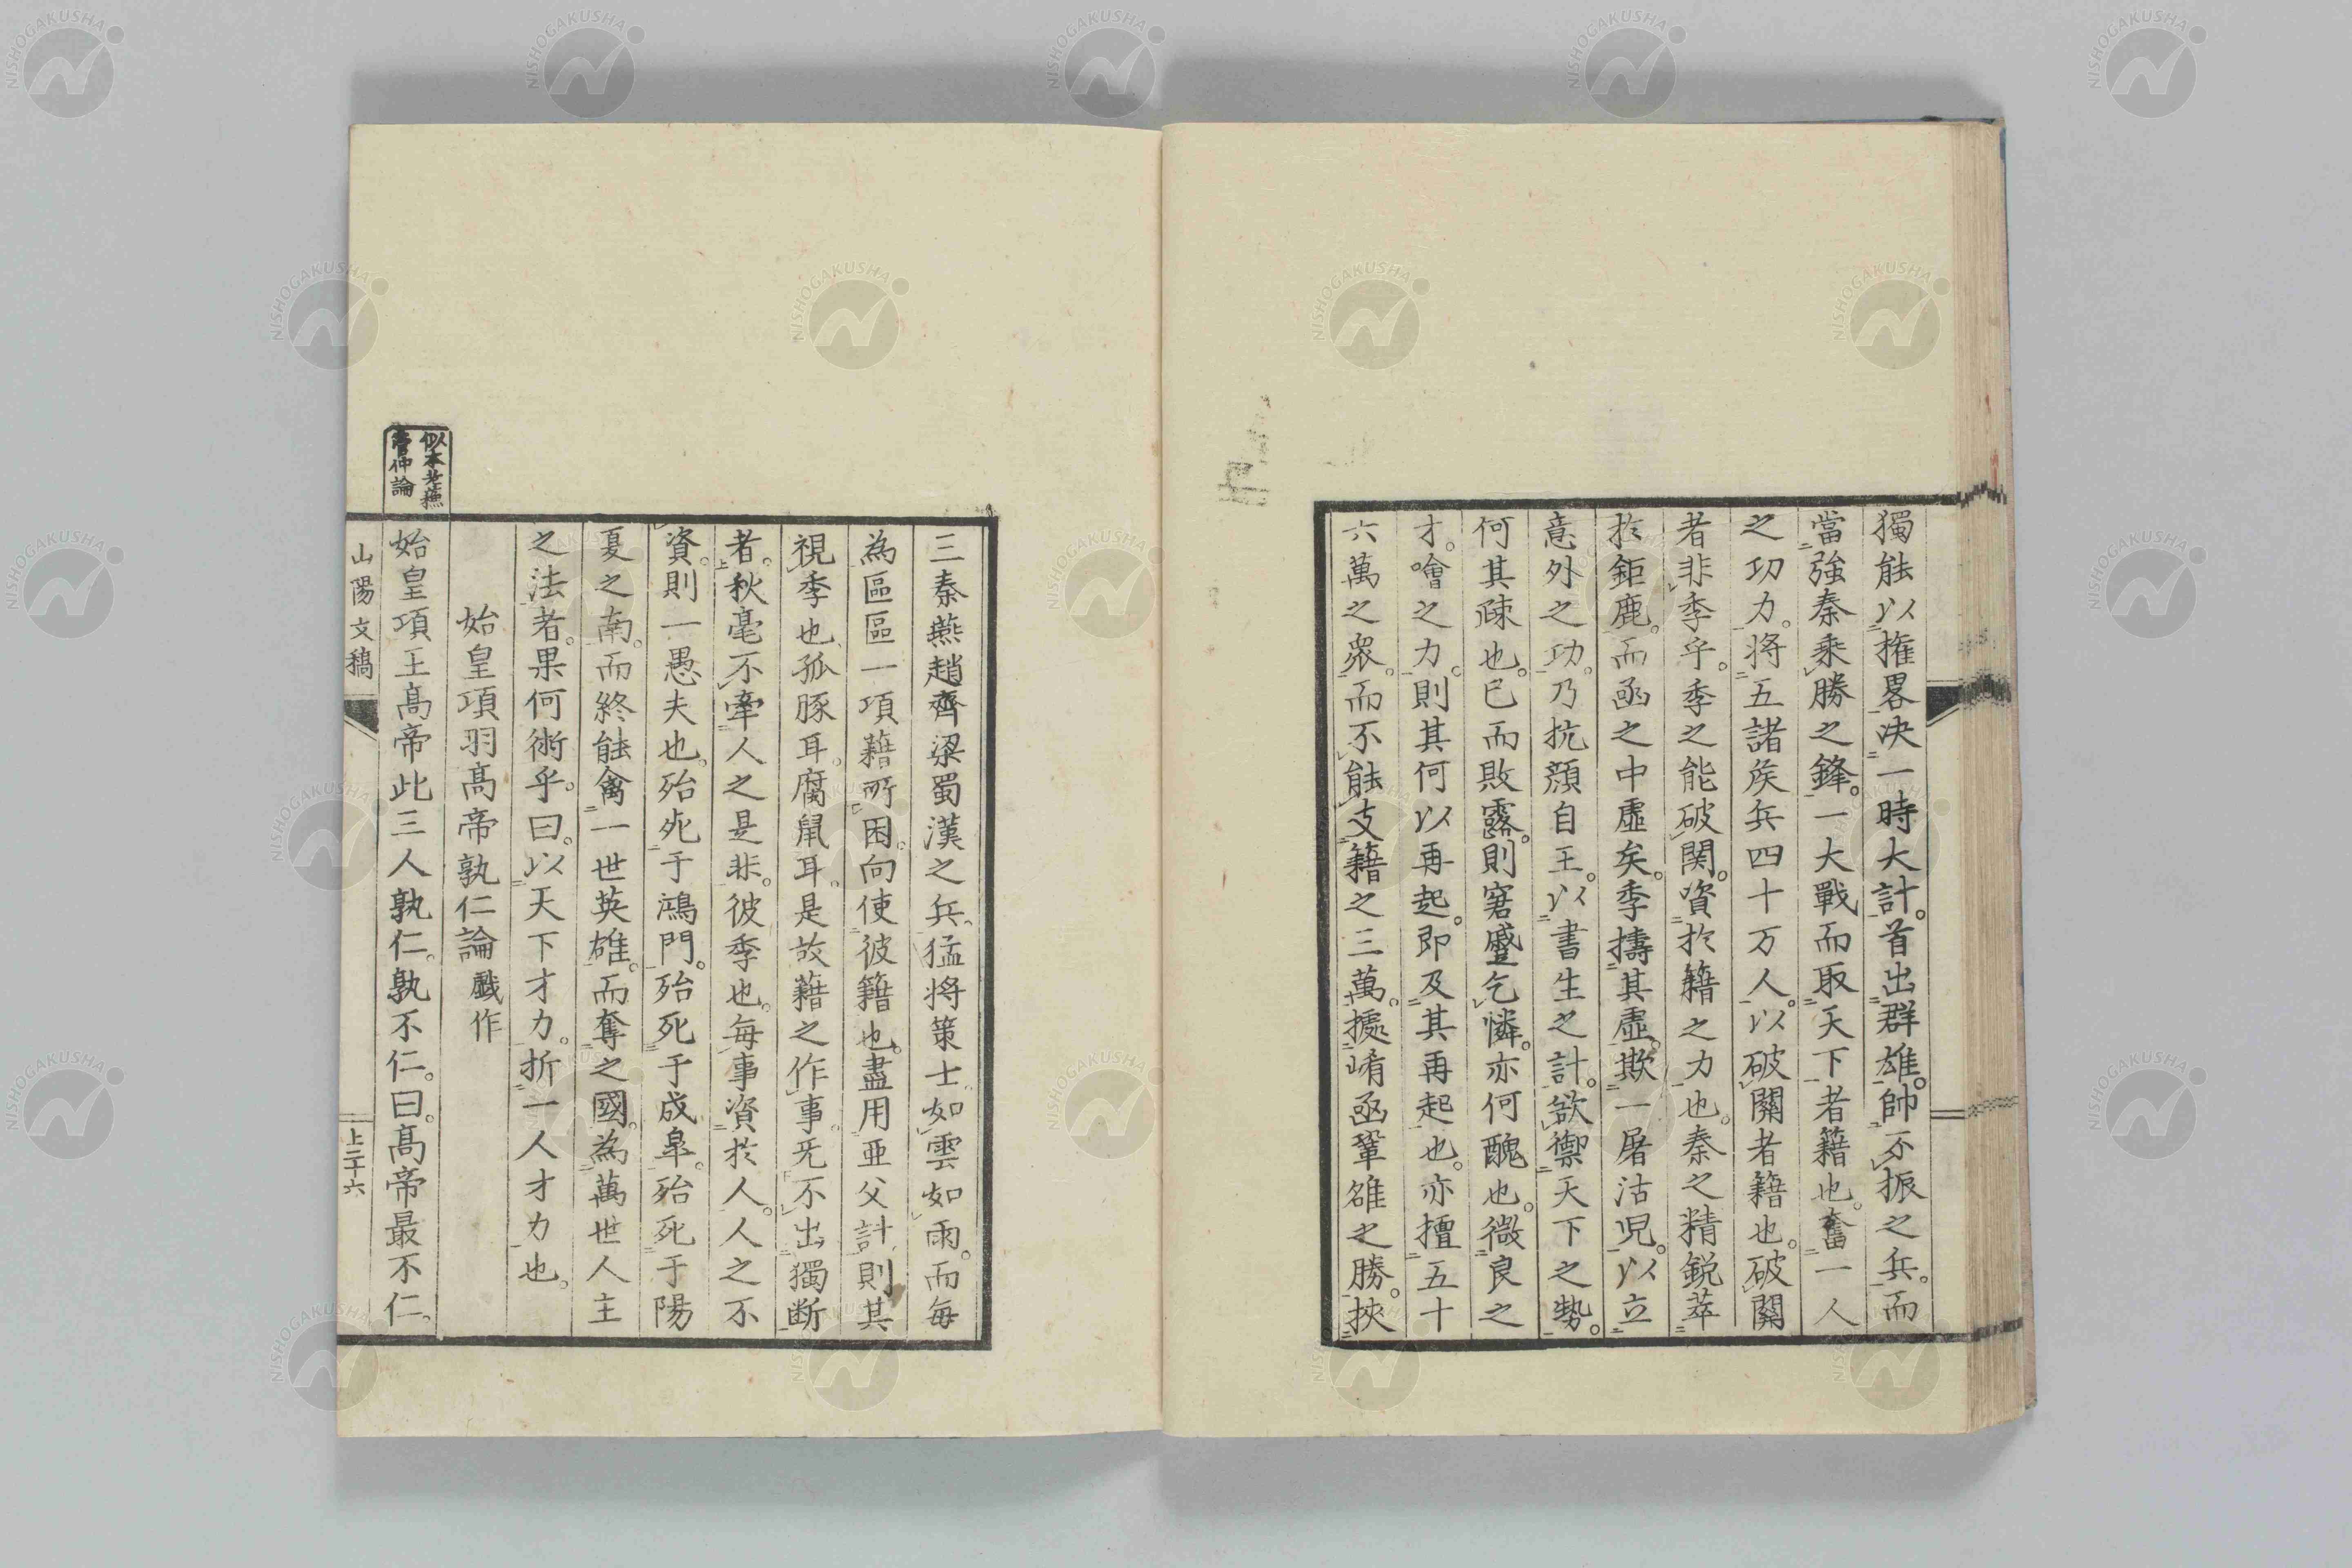 獨能以權畧决一時大計。首出群雄。帥不振之兵。而
當強秦乘勝之鋒。一大戰而取天下者籍也。奮一人
之功力。将五諸矦兵四十万人。以破關者籍也。破關
者非季乎。季之能破関。資於籍之力也。秦之精鋭萃
於鉅鹿。而凾之中虛矣。季擣其虛。欺一屠沽児。以立
意外之功。乃抗顔自王。以書生之計。欲禦天下之勢。
何其疎也。已而敗露。則窘蹙乞憐。亦何醜也。微良之
才。噲之力。則其何以再起。即及其再起也。亦擅五十
六萬之衆。而不能支籍之三萬。據崤凾鞏雒之勝。挾
三秦燕趙齊梁蜀漢之兵。猛将策士。如雲如雨。而毎
為區區一項籍所困。向使彼籍也。盡用亜父計。則其
視季也。孤豚耳。腐鼠耳。是故籍之作事。旡不出獨断
者。秋毫不牽人之是非。彼季也。毎事資於人。人之不
資。則一愚夫也。殆死于鴻門。殆死于成皐。殆死于陽
夏之南。而終能禽一世英雄。而奪之國。為萬世人主
之法者。果何術乎。曰。以天下才力。折一人才力也。
始皇項羽高帝孰仁論 戯作
始皇項王高帝此三人孰仁。孰不仁。曰。高帝最不仁。
似本老蘓
管仲論
山陽文稿
上二十六
NISHOGAKUSHA